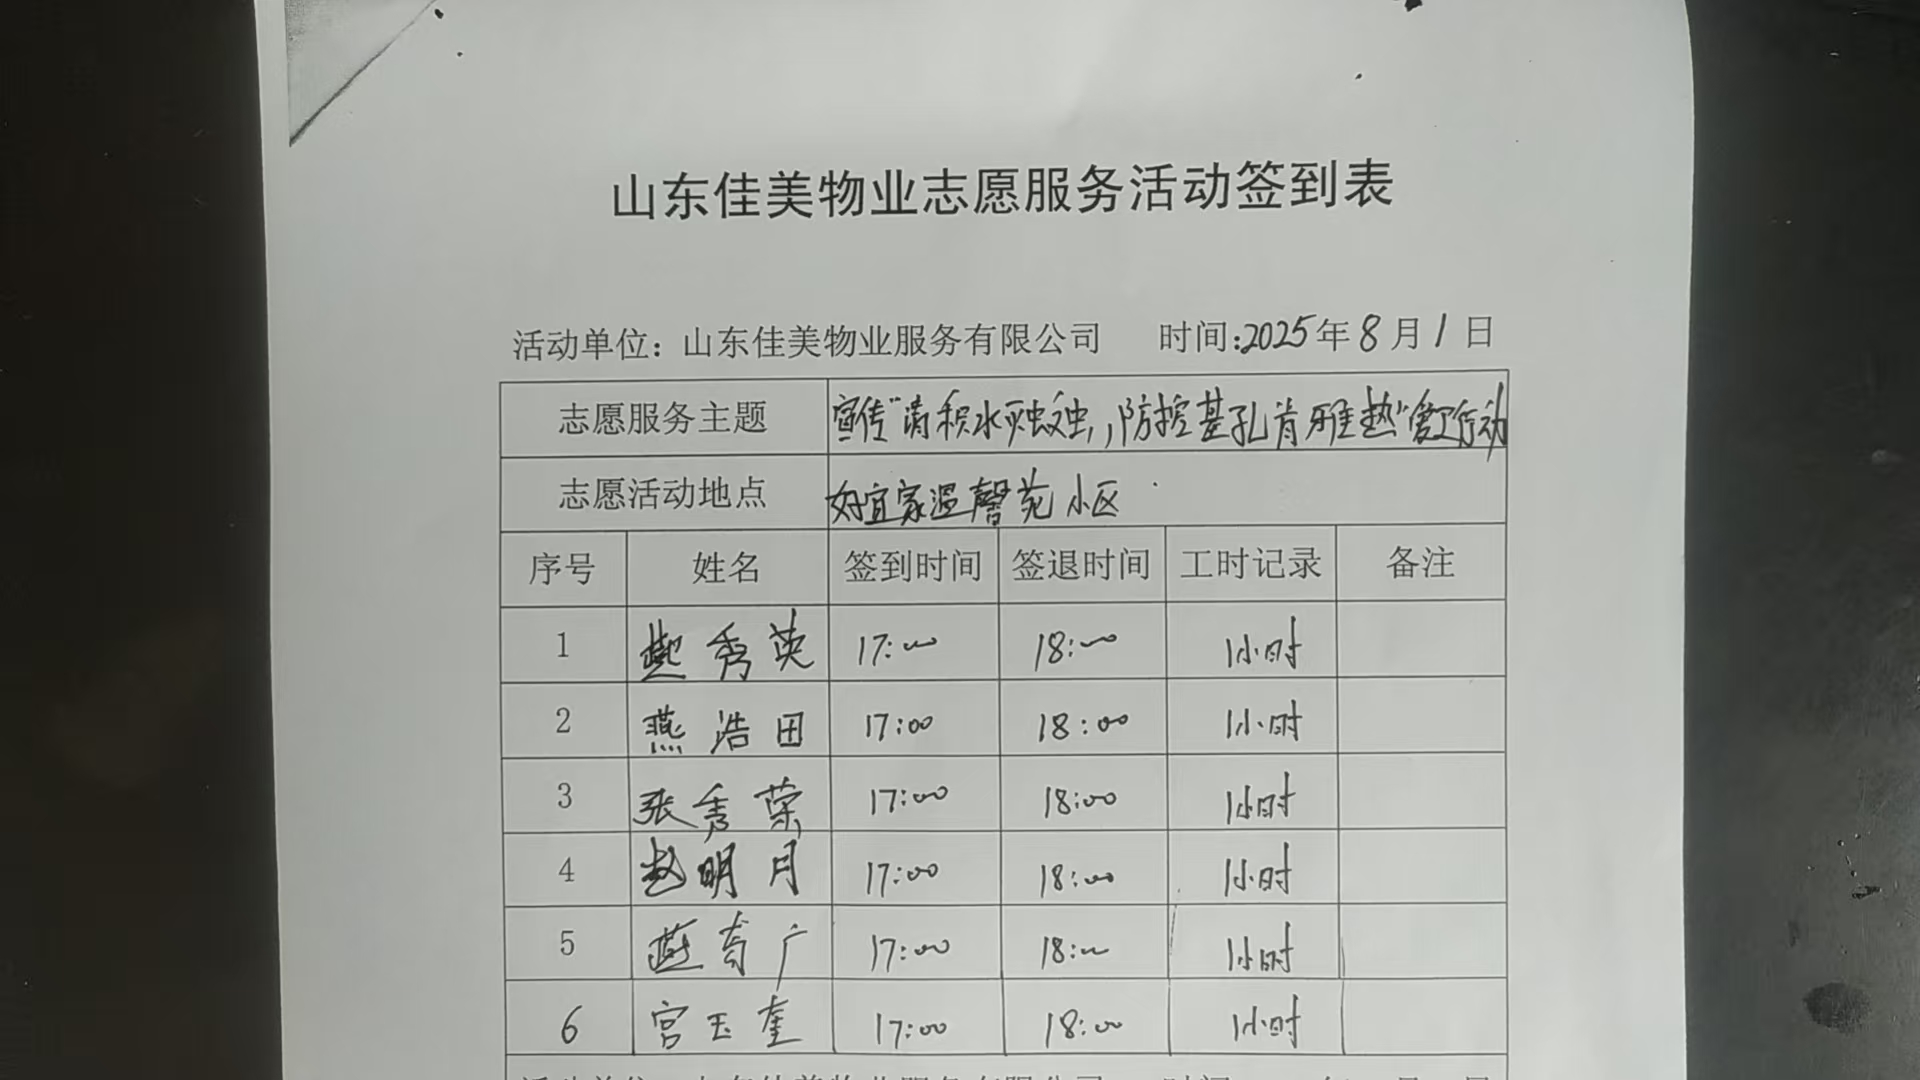 山东佳美物业志愿服务活动签到表
活动单位：山东佳美物业服务有限公司 时间:2025年8月1日
志愿服务主题 宣传"清积水灭蚊虫,防控基孔肯雅热"爱卫行动
志愿活动地点 好宜家温馨苑小区
序号 姓名 签到时间 签退时间 工时记录 备注
1 燕秀英 17:00 18:00 1小时
2 燕浩田 17:00 18:00 1小时
3 张秀荣 17:00 18:00 1小时
4 赵明月 17:00 18:00 1小时
5 燕育广 17:00 18:00 1小时
6 宫玉奎 17:00 18:00 1小时